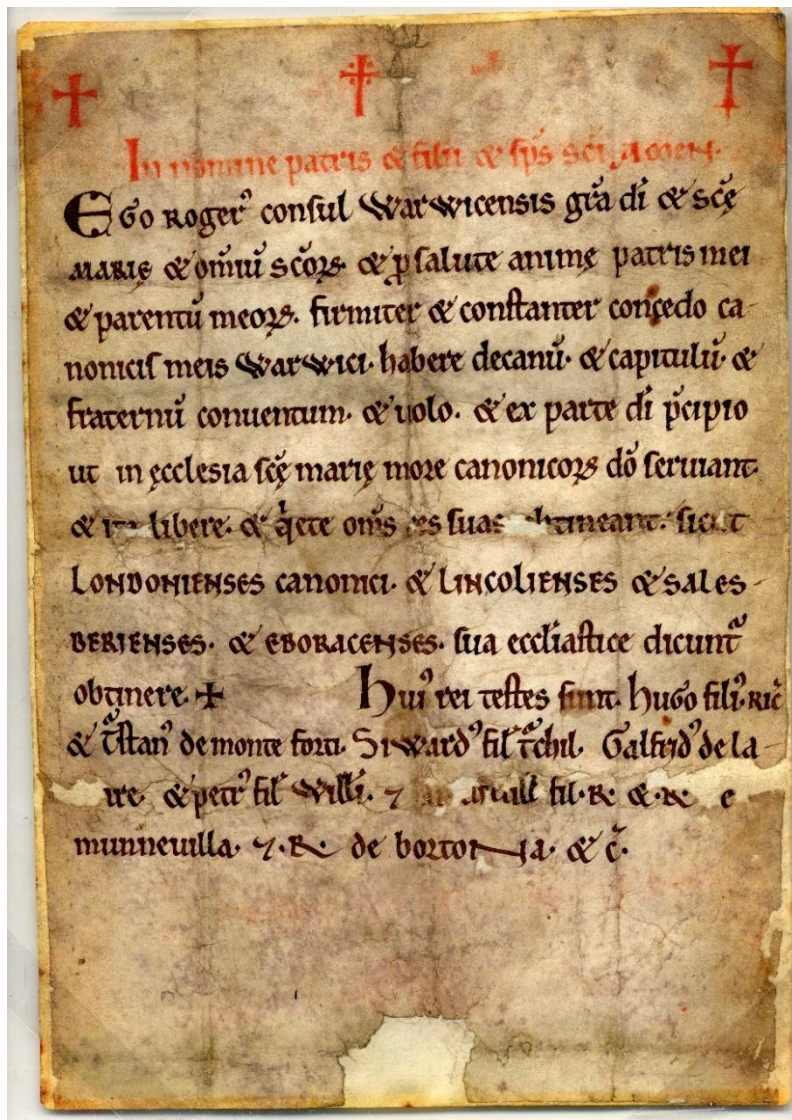 In nomine patris & filii & sp̄s sc̄i Amen.
EGo Roger᾿ consul Warwicensis gr̄a dī & scę̄
Marię & om̄iū sc̄oꝝ. & ꝓ salute animę patris mei
& parentū meoꝝ. firmiter & constanter concedo ca-
nonicis meis Warwici. habere decanū. & capitulū. &
fraternū conuentum. & uolo. & ex parte dī p̄cipio
ut in ęcclesia scę̄ marię more canonicoꝝ dō seruiant.
& libere. & qͥete om̄s res suas sicut
LONDONIENSES canonici. & LINCOLIENSES & SALES-
BERIENSES. & EBORACENSES. sua eccl̄iastice dicunt᾿
obtinere. + hui᾿ rei testes sunt. hugo fili᾿. Ric̄
& T᾿stan᾿ de monte forti. Siward᾿ fil̄ T᾿chil. Galfrid᾿ de la-
& petr᾿ fil̄ Willi. ⁊ fil. R. & R.
munneuilla. ⁊ R. de bortona. & c̄.